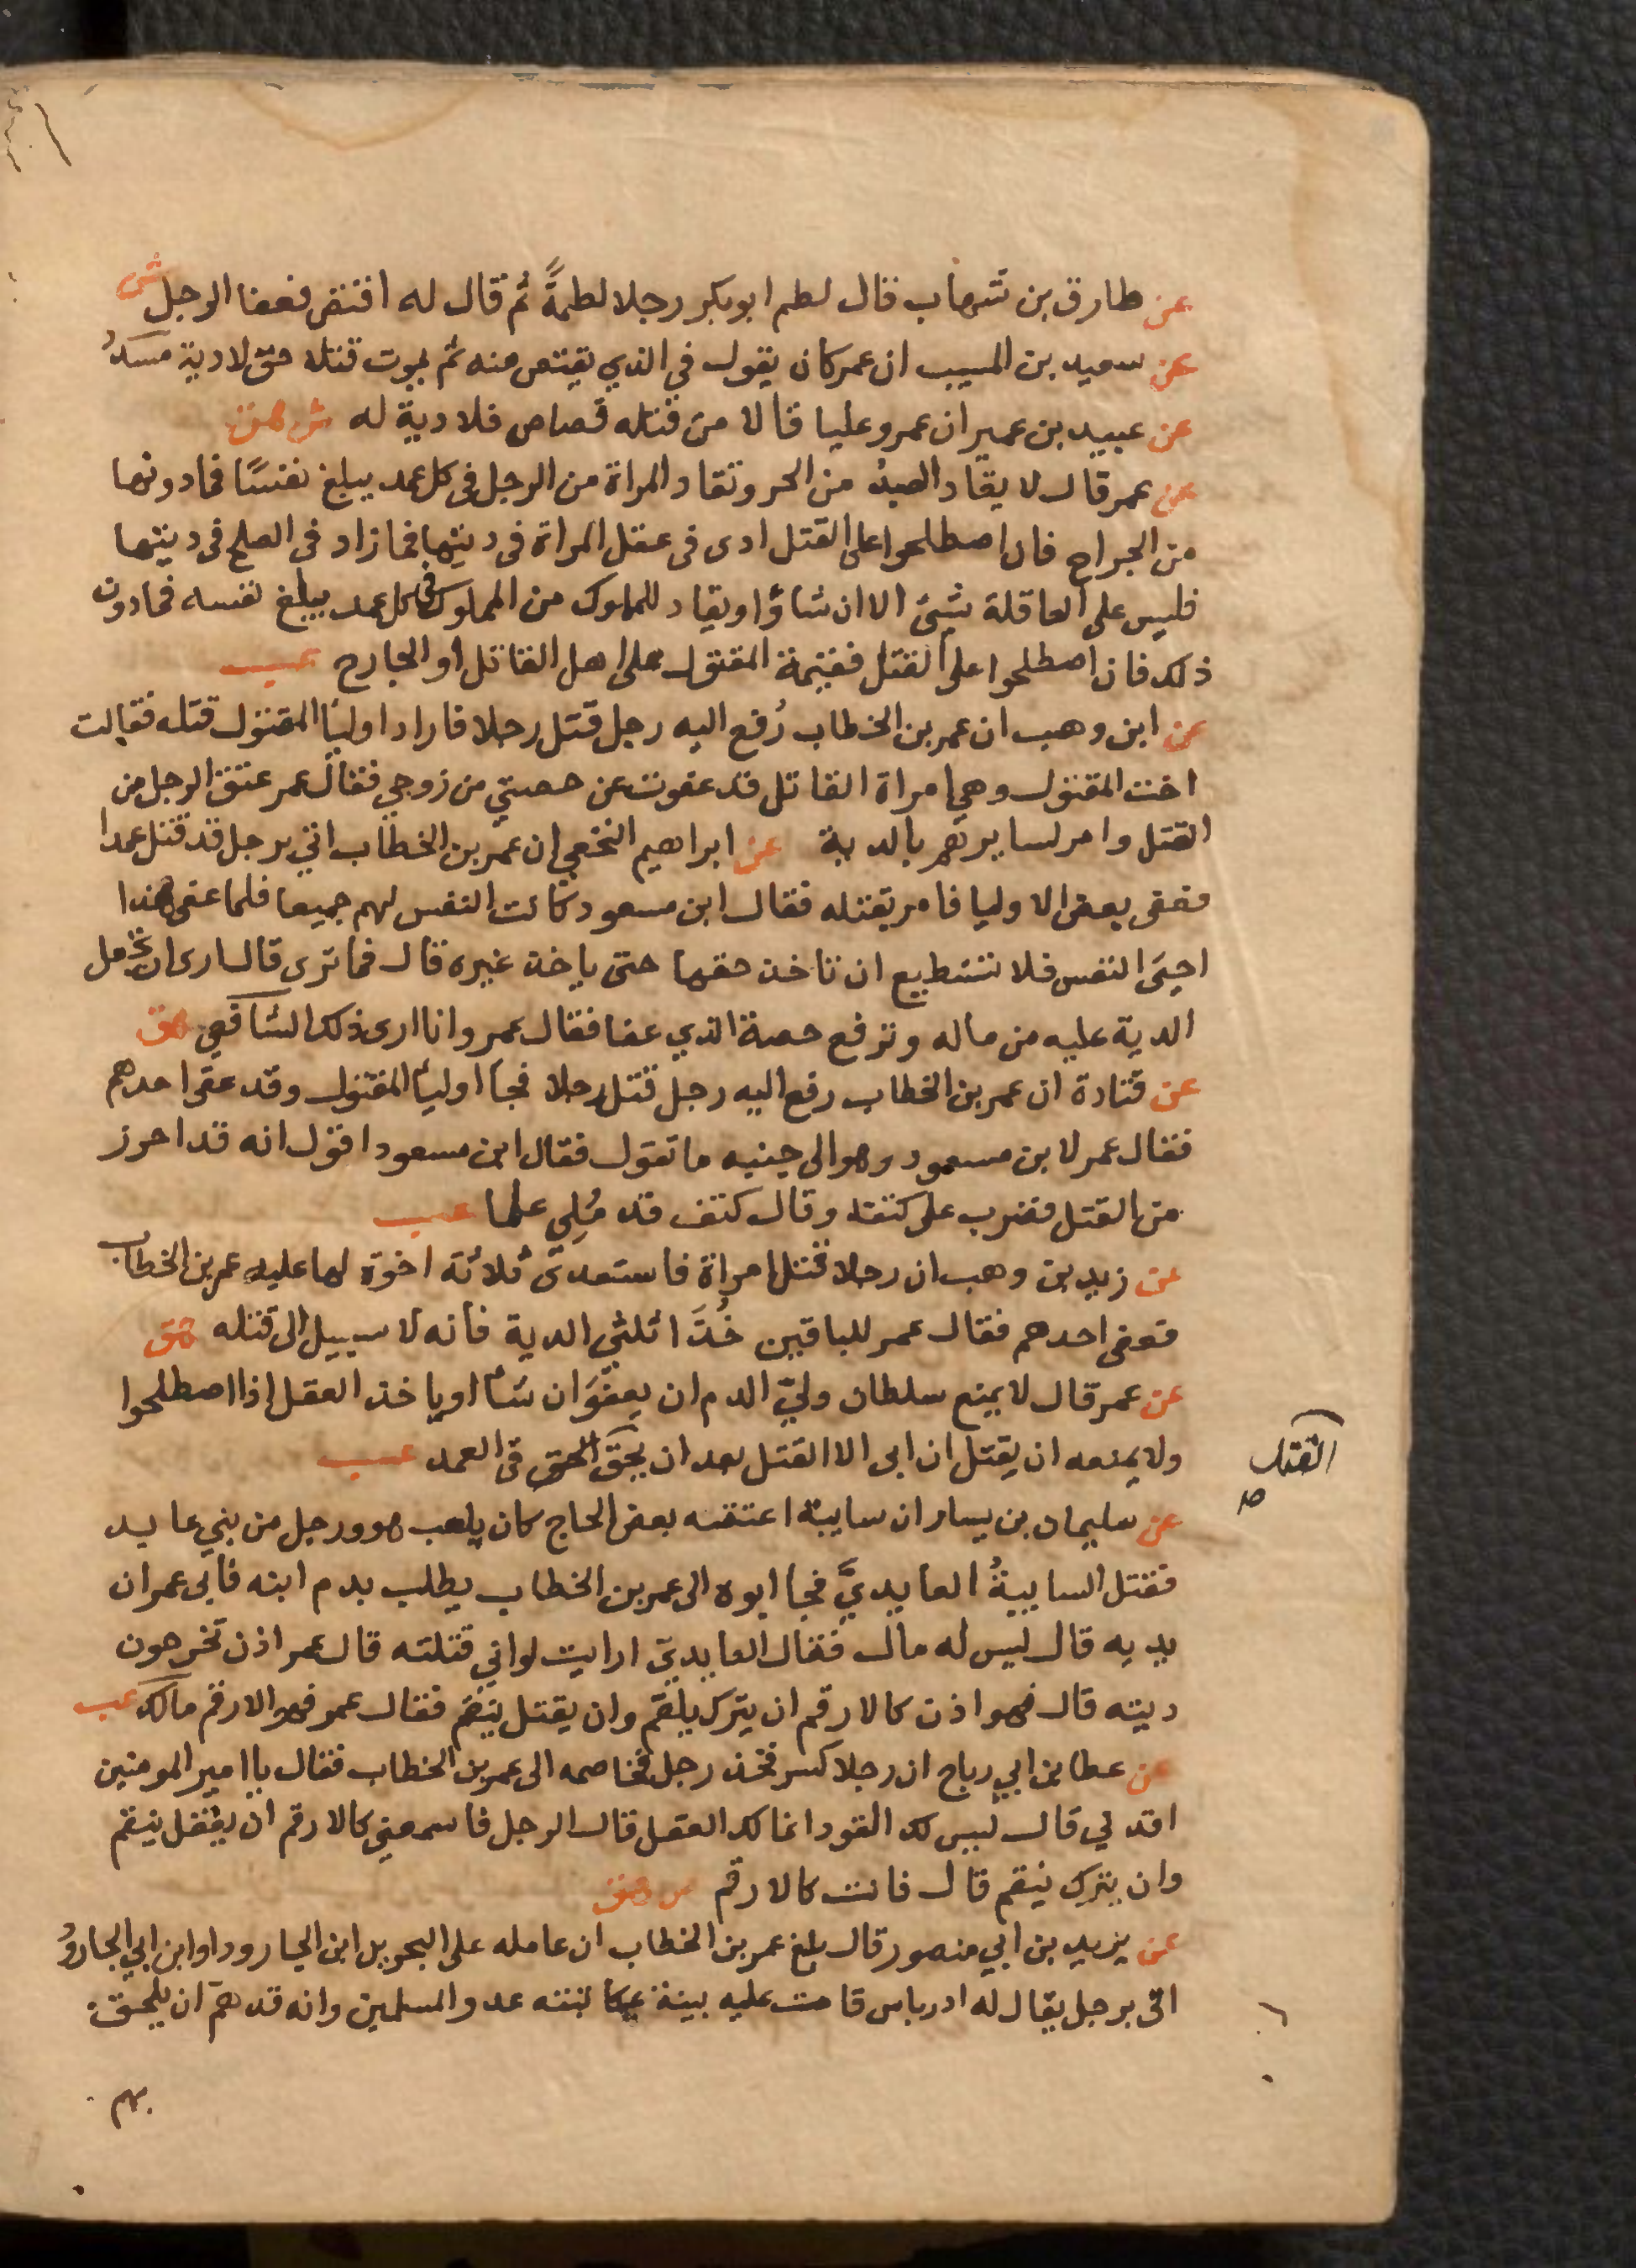 عن طارق بن شهاب قال لطم ابو بكر رجلا لطمةً ثم قال له اقتص فعفا الرجل ش
عن سعيد بن المسيب ان عمر كان يقول في الذي يقتص منه ثم يموت قتله حق لا دية مسدد
عن عبيد بن عمير ان عمر وعليا قالا من قتله قصاص فلا دية له ش هق
عن عمر قال لا يقاد العبدُ من الحر وتقاد المراة من الرجل في كل عمد يبلغ نفسًا فما دونها
من الجراح فان اصطلحوا على القتل ادى في عقل المراة في ديتها فما زاد في الصلح في ديتها
فليس على العاقلة شيئ الا ان شاؤا ويقاد للملوك من المملوك في كل عمد يبلغ نفسه فما دون
ذلك فان اصطلحوا على القتل فقيمة المقتول على اهل القاتل او الجارح عب
عن ابن وهب ان عمر بن الخطاب رُفع اليه رجل قتل رجلا فاراد اوليا المقتول قتله فقالت
اخت المقتول وهي امراة القاتل قد عفوت عن حصتي من زوجي فقال عمر عتق الرجل من
القتل وامر لسايرهم بالدية عن ابراهيم النخعي ان عمر بن الخطاب اتي برجل قد قتل عمدا
فعفى بعض الاوليا فامر بقتله فقال ابن مسعود كانت النفس لهم جميعا فلما عفى هذا
احيَى النفس فلا تستطيع ان تاخذ حقها حتى ياخذ غيره قال فما ترى قال ارى ان تجعل
الدية عليه من ماله وترفع حصة الذي عفا فقال عمر وانا ارى ذلك الشافعي هق
عن قتادة ان عمر بن الخطاب رفع اليه رجل قتل رجلا فجا اوليا المقتول وقد عفى احدهم
فقال عمر لابن مسعود وهو الى جنبه ما تقول فقال ابن مسعود اقول انه قد احرز
من القتل فضرب على كتفه وقال كنف قد مُلِى علما عب
عن زيد بن وهب ان رجلا قتل امراة فاستعدى ثلاثة اخوة لها عليه عمر بن الخطاب
فعفى احدهم فقال عمر للباقين خُذَا ثلثي الدية فانه لا سبيل الى قتله هق
عن عمر قال لا يمنع سلطان وليّ الدم ان يعفوَ ان شا او ياخذ العقل اذا اصطلحوا
ولا يمنعه ان يقتل ان ابى الا القتل بعد ان يحقَّ الحق في العمد عب
القتل
صح
عن سليمان بن يسار ان سايبة اعتقه بعض الحاج كان يلعب هو ورجل من بني عايد
فقتل السايبةُ العايديَّ فجا ابوه الى عمر بن الخطاب يطلب بدم ابنه فابى عمر ان
يديه قال ليس له مال فقال العايديّ ارايت لو اني قتلته قال عمر اذن تخرجون
ديته قال فهو اذن كالارقم ان يترك يلقم وان يقتل ينقم فقال عمر فهو الارقم مالك عب
عن عطا بن ابي رباح ان رجلا كسر فخذ رجل فخاصمه الى عمر بن الخطاب فقال يا امير المومنين
اقد لي قال ليس لك القود انما لك العقل قال الرجل فاسمعني كالارقم ان يقتل ينقم
وان يترك ينقم قال فانت كالارقم ص هق
عن يزيد بن ابي منصور قال بلغ عمر بن الخطاب ان عامله على البحرين ابن الجارود او ابن ابي الجارود
اتى برجل يقال له ادرباس قامت عليه بينة بمكاتبته عدو المسلمين وانه قد همّ ان يلحق
بهم